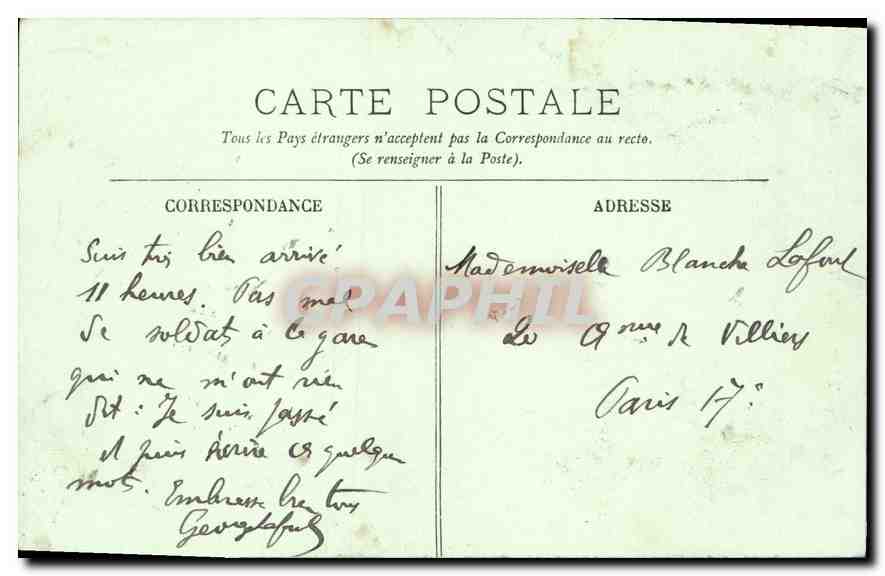 CARTE POSTALE
Tous les Pays étrangers n'acceptent pas la Correspondance au recto.
(Se renseigner à la Poste).
CORRESPONDANCE
ADRESSE
Suis très bien arrivé
11 heures. Pas mal
de soldats à la gare
qui ne m'ont rien
dit : Je suis passé
et puis écrire ces quelques
mots. Embrasse bien tous
Mademoiselle Blanche Lafont
20 Avenue de Villiers
Paris 17e
CPAPHIL